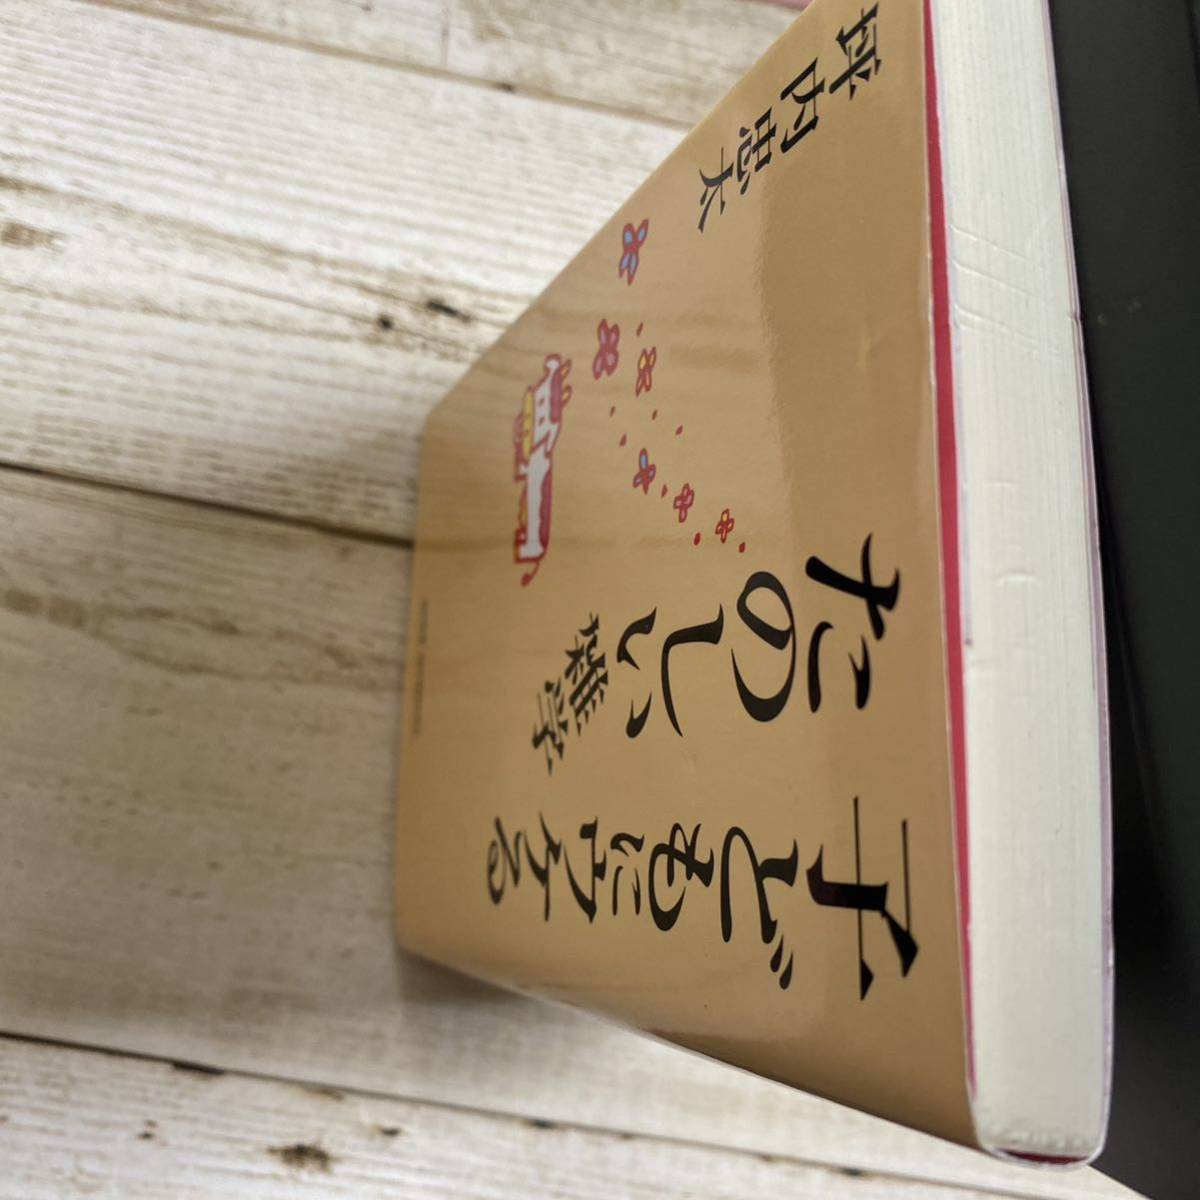 子どもにウケる
たのしい雑学
坪内忠太